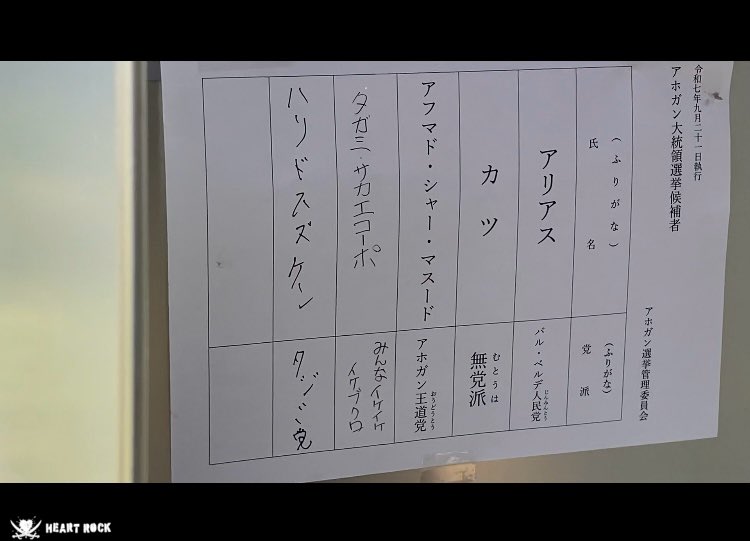 令和七年九月二十一日執行
アホガン大統領選挙候補者
アホガン選挙管理委員会
(ふりがな)
氏名
(ふりがな)
党派
アリアス
バル・ベルデ人民党
じんみんとう
カツ
無党派
むとうは
アフマド・シャー・マスード
アホガン王道党
おうどうとう
タガミ・サカエコーポ
みんなイケイケ
イケブクロ
ハリドスズケン
タジミ党
HEART ROCK